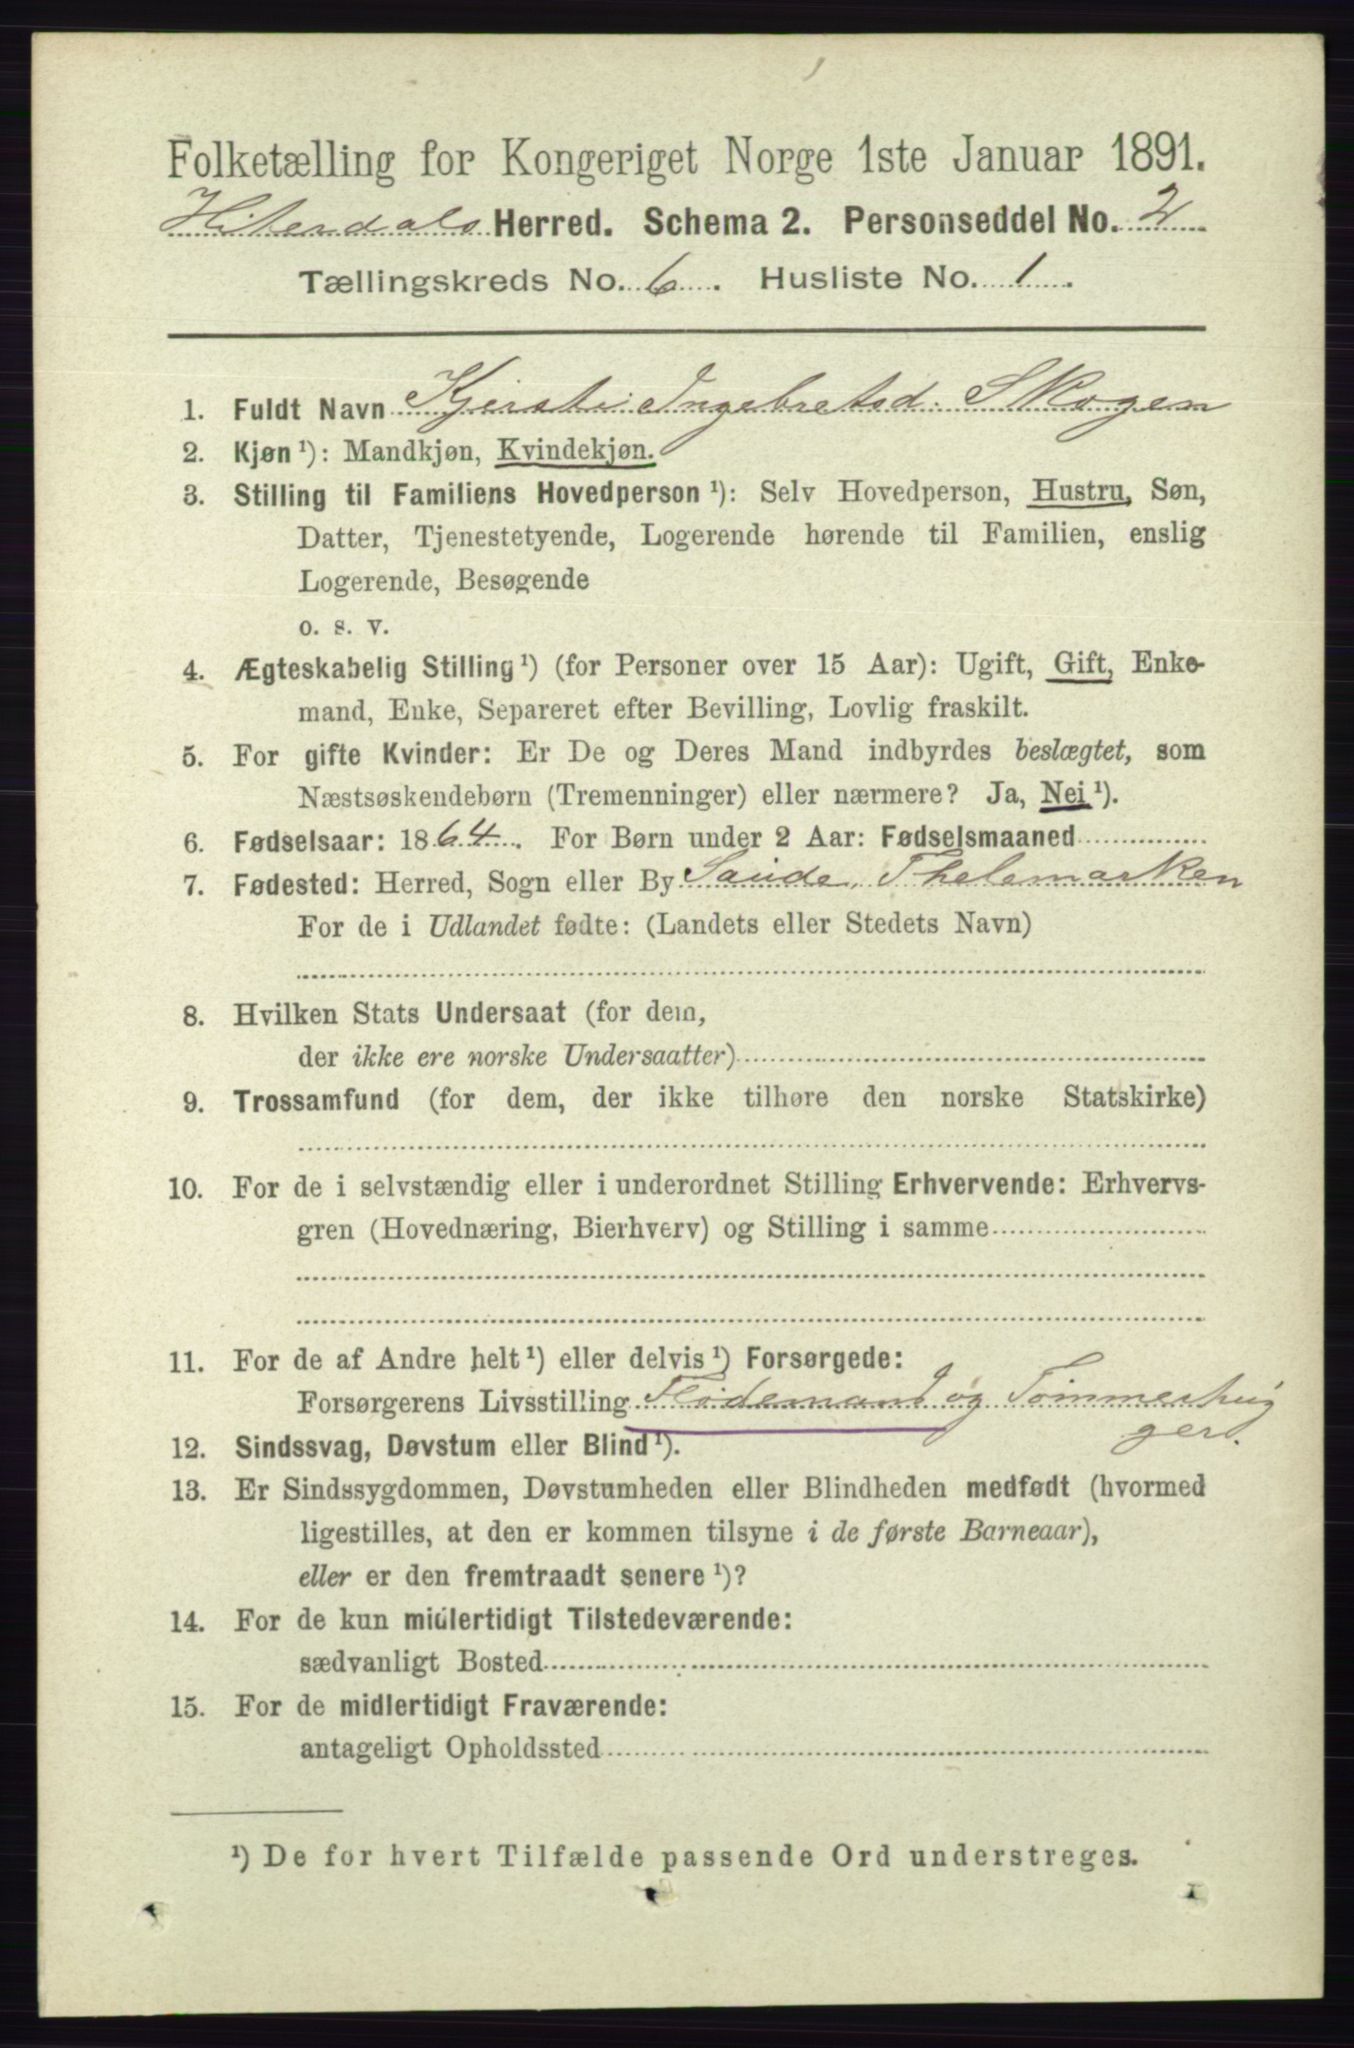 Folketælling for Kongeriget Norge 1ste Januar 1891.
Hiterdals Herred. Schema 2. Personseddel No. 2
Tællingskreds No. 6. Husliste No. 1.
1. Fuldt Navn Kjersti Ingebretsd. Skogen
2. Kjøn¹): Mandkjøn, Kvindekjøn.
3. Stilling til Familiens Hovedperson¹): Selv Hovedperson, Hustru, Søn,
Datter, Tjenestetyende, Logerende hørende til Familien, enslig
Logerende, Besøgende
o. s. v.
4. Ægteskabelig Stilling¹) (for Personer over 15 Aar): Ugift, Gift, Enke-
mand, Enke, Separeret efter Bevilling, Lovlig fraskilt.
5. For gifte Kvinder: Er De og Deres Mand indbyrdes beslægtet, som
Næstsøskendebørn (Tremenninger) eller nærmere? Ja, Nei¹).
6. Fødselsaar: 1864. For Børn under 2 Aar: Fødselsmaaned
7. Fødested: Herred, Sogn eller By Saude, Thelemarken
For de i Udlandet fødte: (Landets eller Stedets Navn)
8. Hvilken Stats Undersaat (for dem,
der ikke ere norske Undersaatter)
9. Trossamfund (for dem, der ikke tilhøre den norske Statskirke)
10. For de i selvstændig eller i underordnet Stilling Erhvervende: Erhvervs-
gren (Hovednæring, Bierhverv) og Stilling i samme
11. For de af Andre helt¹) eller delvis¹) Forsørgede:
Forsørgerens Livsstilling Flødemand og Tømmerhug
ger.
12. Sindssvag, Døvstum eller Blind¹).
13. Er Sindssygdommen, Døvstumheden eller Blindheden medfødt (hvormed
ligestilles, at den er kommen tilsyne i de første Barneaar),
eller er den fremtraadt senere¹)?
14. For de kun midlertidigt Tilstedeværende:
sædvanligt Bosted
15. For de midlertidigt Fraværende:
antageligt Opholdssted
¹) De for hvert Tilfælde passende Ord understreges.